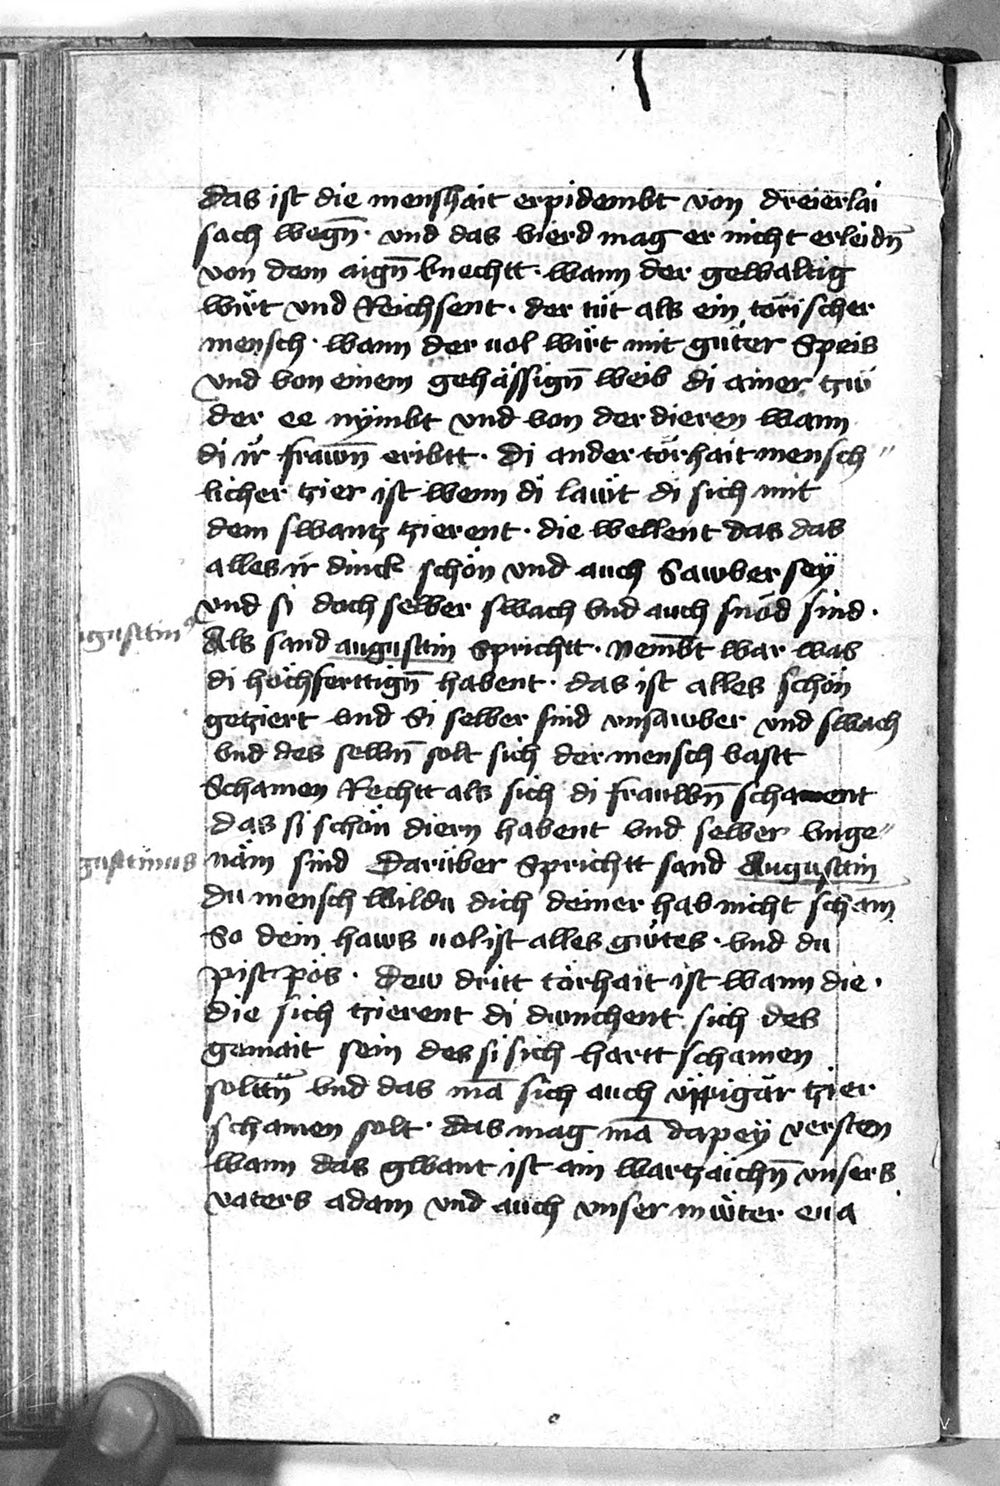 das ist die menshait erpidembt von dreierlai
sach wegn̄ · vnd das vierd mag er nicht erleidn̄
von dem aign̄ knechtt · wann der gewaltig
wirt vnd Reichsent · der tüt als ein törischer
mensch · wann der uol wirt mit güter Speis
vnd von einem gehässign̄ weib di ainer tzw̎
der ee nÿmbt vnd von der dieren wann
di ir frawn̄ eribtt · Di ander törhait mensch〃
licher tzier ist wenn di lawt di sich mit
dem swantz tzierent · die wellent das das
alles ir dinck schön vnd auch Sawber seÿ
vnd si doch selber swach vnd auch snöd sind ·
Als sand augusttin Sprichtt · Nembt war was
di höchferttign̄ habent · das ist alles schön
getziert vnd Si selber sind vnsawber vnd swach
vnd des sellm̄ solt sich der mensch vastt
Schamen Rechtt als sich di frauwn̄ schament
das si schön diern habent vnd selber vnge〃
näm sind Darüber Sprichtt sand Augustin
du mensch wildu dich deiner hab nicht scham
So dein haws uol ist alles gütes · vnd du
pist pös · Dew dritt törhait ist wann die ·
die sich tzierent di dunchent sich des
gemait sein des si sich hartt schamen
solttn̄ vnd das mā sich auch üppigär tzier
schamen solt · das mag mā dapeÿ versten
wann das gwant ist ain wartzaichn̄ vnsers
vaters adam vnd auch vnser müter eua
gusttin⁹
gusttinus